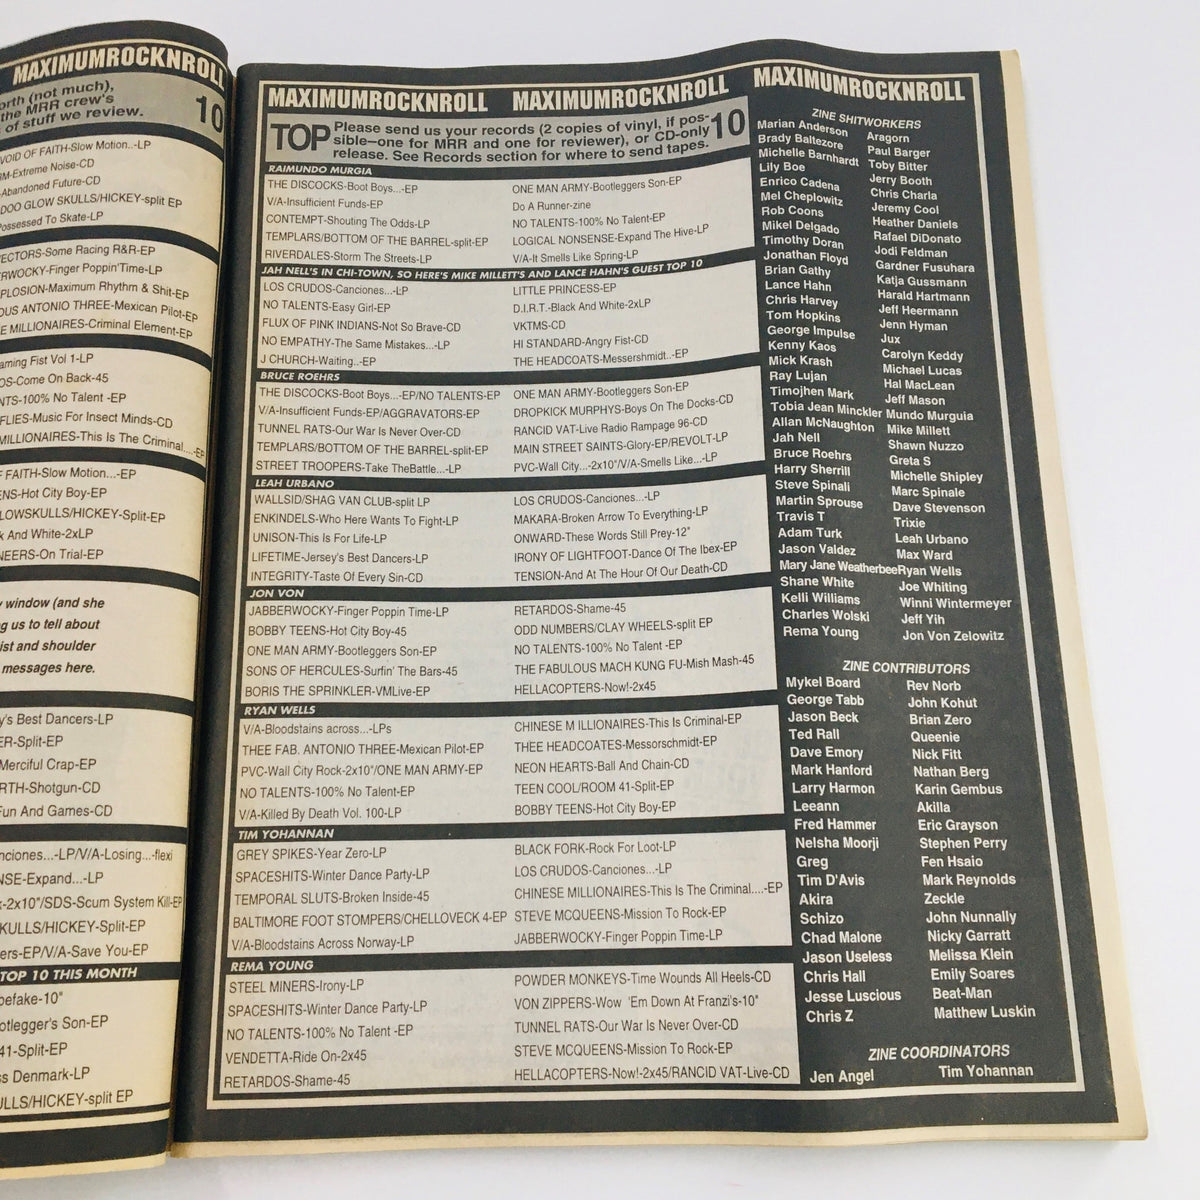 MAXIMUMROCKNROLL
orth (not much),
the MRR crew's
of stuff we review.
10
VOID OF FAITH-Slow Motion..-LP
RM-Extreme Noise-CD
-Abandoned Future-CD
DOO GLOW SKULLS/HICKEY-split EP
Possessed To Skate-LP
ECTORS-Some Racing R&R-EP
ERWOCKY-Finger Poppin'Time-LP
PLOSION-Maximum Rhythm & Shit-EP
OUS ANTONIO THREE-Mexican Pilot-EP
E MILLIONAIRES-Criminal Element-EP
aming Fist Vol 1-LP
OS-Come On Back-45
NTS-100% No Talent -EP
FLIES-Music For Insect Minds-CD
MILLIONAIRES-This Is The Criminal....-EP
F FAITH-Slow Motion...-EP
ENS-Hot City Boy-EP
LOWSKULLS/HICKEY-Split-EP
k And White-2xLP
NEERS-On Trial-EP
y window (and she
ng us to tell about
ist and shoulder
messages here.
y's Best Dancers-LP
ER-Split-EP
Merciful Crap-EP
RTH-Shotgun-CD
Fun And Games-CD
nciones...-LP/V/A-Losing...-flexi
NSE-Expand...-LP
k-2x10"/SDS-Scum System Kill-EP
KULLS/HICKEY-Split-EP
ers-EP/V/A-Save You-EP
TOP 10 THIS MONTH
befake-10"
otlegger's Son-EP
41-Split-EP
ss Denmark-LP
ULLS/HICKEY-split EP
MAXIMUMROCKNROLL MAXIMUMROCKNROLL MAXIMUMROCKNROLL
TOP
Please send us your records (2 copies of vinyl, if pos-
sible—one for MRR and one for reviewer), or CD-only
release. See Records section for where to send tapes.
10
RAIMUNDO MURGIA
THE DISCOCKS-Boot Boys...-EP
V/A-Insufficient Funds-EP
CONTEMPT-Shouting The Odds-LP
TEMPLARS/BOTTOM OF THE BARREL-split-EP
RIVERDALES-Storm The Streets-LP
ONE MAN ARMY-Bootleggers Son-EP
Do A Runner-zine
NO TALENTS-100% No Talent-EP
LOGICAL NONSENSE-Expand The Hive-LP
V/A-It Smells Like Spring-LP
JAH NELL'S IN CHI-TOWN, SO HERE'S MIKE MILLETT'S AND LANCE HAHN'S GUEST TOP 10
LOS CRUDOS-Canciones...-LP
NO TALENTS-Easy Girl-EP
FLUX OF PINK INDIANS-Not So Brave-CD
NO EMPATHY-The Same Mistakes...-LP
J CHURCH-Waiting..-EP
LITTLE PRINCESS-EP
D.I.R.T.-Black And White-2xLP
VKTMS-CD
HI STANDARD-Angry Fist-CD
THE HEADCOATS-Messershmidt..-EP
BRUCE ROEHRS
THE DISCOCKS-Boot Boys...-EP/NO TALENTS-EP
V/A-Insufficient Funds-EP/AGGRAVATORS-EP
TUNNEL RATS-Our War Is Never Over-CD
TEMPLARS/BOTTOM OF THE BARREL-split-EP
STREET TROOPERS-Take TheBattle...-LP
ONE MAN ARMY-Bootleggers Son-EP
DROPKICK MURPHYS-Boys On The Docks-CD
RANCID VAT-Live Radio Rampage 96-CD
MAIN STREET SAINTS-Glory-EP/REVOLT-LP
PVC-Wall City...-2x10"/V/A-Smells Like...-LP
LEAH URBANO
WALLSID/SHAG VAN CLUB-split LP
ENKINDELS-Who Here Wants To Fight-LP
UNISON-This Is For Life-LP
LIFETIME-Jersey's Best Dancers-LP
INTEGRITY-Taste Of Every Sin-CD
LOS CRUDOS-Canciones...-LP
MAKARA-Broken Arrow To Everything-LP
ONWARD-These Words Still Prey-12"
IRONY OF LIGHTFOOT-Dance Of The Ibex-EP
TENSION-And At The Hour Of Our Death-CD
JON VON
JABBERWOCKY-Finger Poppin Time-LP
BOBBY TEENS-Hot City Boy-45
ONE MAN ARMY-Bootleggers Son-EP
SONS OF HERCULES-Surfin' The Bars-45
BORIS THE SPRINKLER-VMLive-EP
RETARDOS-Shame-45
ODD NUMBERS/CLAY WHEELS-split EP
NO TALENTS-100% No Talent -EP
THE FABULOUS MACH KUNG FU-Mish Mash-45
HELLACOPTERS-Now!-2x45
RYAN WELLS
V/A-Bloodstains across...-LPs
THEE FAB. ANTONIO THREE-Mexican Pilot-EP
PVC-Wall City Rock-2x10"/ONE MAN ARMY-EP
NO TALENTS-100% No Talent-EP
V/A-Killed By Death Vol. 100-LP
CHINESE M ILLIONAIRES-This Is Criminal-EP
THEE HEADCOATES-Messorschmidt-EP
NEON HEARTS-Ball And Chain-CD
TEEN COOL/ROOM 41-Split-EP
BOBBY TEENS-Hot City Boy-EP
TIM YOHANNAN
GREY SPIKES-Year Zero-LP
SPACESHITS-Winter Dance Party-LP
TEMPORAL SLUTS-Broken Inside-45
BALTIMORE FOOT STOMPERS/CHELLOVECK 4-EP
V/A-Bloodstains Across Norway-LP
BLACK FORK-Rock For Loot-LP
LOS CRUDOS-Canciones...-LP
CHINESE MILLIONAIRES-This Is The Criminal....-EP
STEVE MCQUEENS-Mission To Rock-EP
JABBERWOCKY-Finger Poppin Time-LP
REMA YOUNG
STEEL MINERS-Irony-LP
SPACESHITS-Winter Dance Party-LP
NO TALENTS-100% No Talent -EP
VENDETTA-Ride On-2x45
RETARDOS-Shame-45
POWDER MONKEYS-Time Wounds All Heels-CD
VON ZIPPERS-Wow 'Em Down At Franzi's-10"
TUNNEL RATS-Our War Is Never Over-CD
STEVE MCQUEENS-Mission To Rock-EP
HELLACOPTERS-Now!-2x45/RANCID VAT-Live-CD
ZINE SHITWORKERS
Marian Anderson
Brady Baltezore
Michelle Barnhardt
Lily Boe
Enrico Cadena
Mel Cheplowitz
Rob Coons
Mikel Delgado
Timothy Doran
Jonathan Floyd
Brian Gathy
Lance Hahn
Chris Harvey
Tom Hopkins
George Impulse
Kenny Kaos
Mick Krash
Ray Lujan
Timojhen Mark
Tobia Jean Minckler
Allan McNaughton
Jah Nell
Bruce Roehrs
Harry Sherrill
Steve Spinali
Martin Sprouse
Travis T
Adam Turk
Jason Valdez
Mary Jane Weatherbee
Shane White
Kelli Williams
Charles Wolski
Rema Young
Aragorn
Paul Barger
Toby Bitter
Jerry Booth
Chris Charla
Jeremy Cool
Heather Daniels
Rafael DiDonato
Jodi Feldman
Gardner Fusuhara
Katja Gussmann
Harald Hartmann
Jeff Heermann
Jenn Hyman
Jux
Carolyn Keddy
Michael Lucas
Hal MacLean
Jeff Mason
Mundo Murguia
Mike Millett
Shawn Nuzzo
Greta S
Michelle Shipley
Marc Spinale
Dave Stevenson
Trixie
Leah Urbano
Max Ward
Ryan Wells
Joe Whiting
Winni Wintermeyer
Jeff Yih
Jon Von Zelowitz
ZINE CONTRIBUTORS
Mykel Board
George Tabb
Jason Beck
Ted Rall
Dave Emory
Mark Hanford
Larry Harmon
Leeann
Fred Hammer
Nelsha Moorji
Greg
Tim D'Avis
Akira
Schizo
Chad Malone
Jason Useless
Chris Hall
Jesse Luscious
Chris Z
Rev Norb
John Kohut
Brian Zero
Queenie
Nick Fitt
Nathan Berg
Karin Gembus
Akilla
Eric Grayson
Stephen Perry
Fen Hsaio
Mark Reynolds
Zeckle
John Nunnally
Nicky Garratt
Melissa Klein
Emily Soares
Beat-Man
Matthew Luskin
ZINE COORDINATORS
Jen Angel
Tim Yohannan